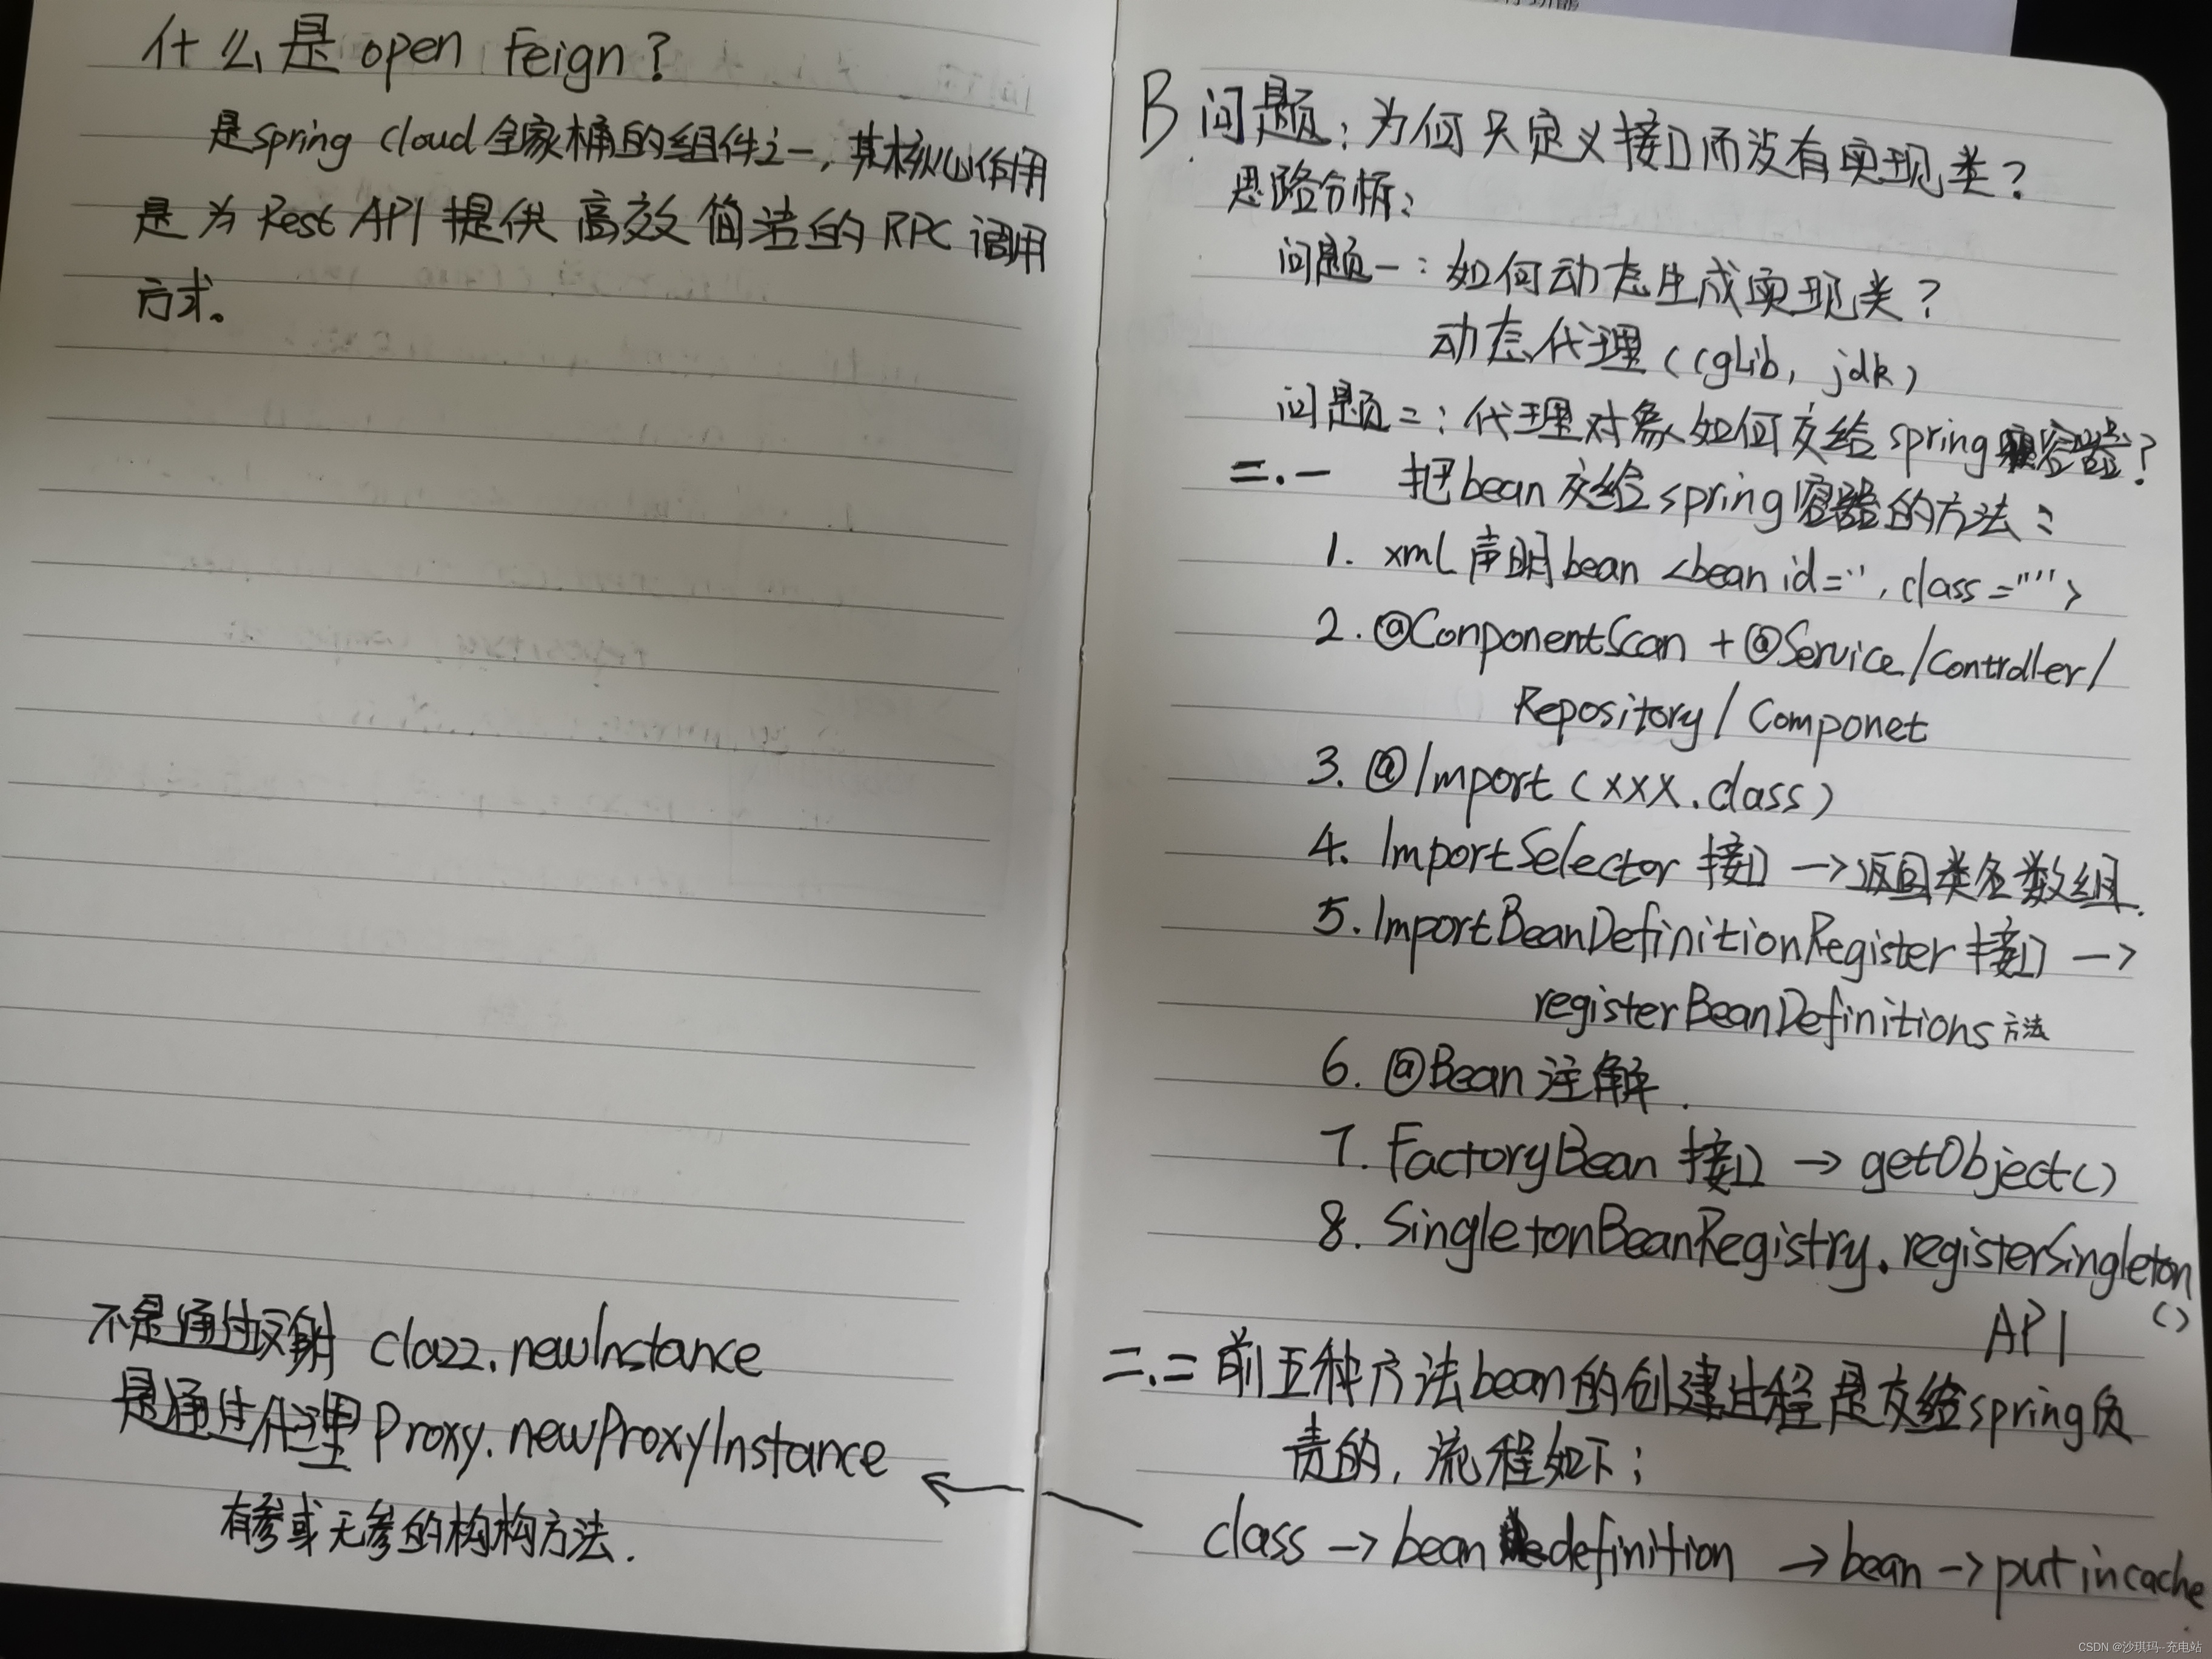 什么是open Feign?
是spring Cloud全家桶的组件之一,其核心作用
是为Rest API提供高效简洁的RPC调用
方式。
不是通过反射 Clazz.newInstance
是通过代理 Proxy.newProxyInstance
有参或无参的构构方法.
B 问题:为何只定义接口而没有实现类?
思路分析:
问题一:如何动态生成实现类?
动态代理(cgLib, jdk)
问题二:代理对象如何交给spring容器?
二.一 把bean交给spring容器的方法:
1. xml声明bean <bean id='', class="">
2. @ConponentScan + @Service/Controller/
Repository/Componet
3. @Import(XXX.class)
4. ImportSelector 接口 → 返回类名数组.
5. ImportBeanDefinitionRegister 接口 →
registerBeanDefinitions方法
6. @Bean 注解.
7. FactoryBean 接口 → getObject()
8. SingletonBeanRegistry.registerSingleton
()
API
二.二 前五种方法bean的创建过程是交给spring负
责的,流程如下:
class → bean definition → bean → put in cache
CSDN @沙琪玛--充电站